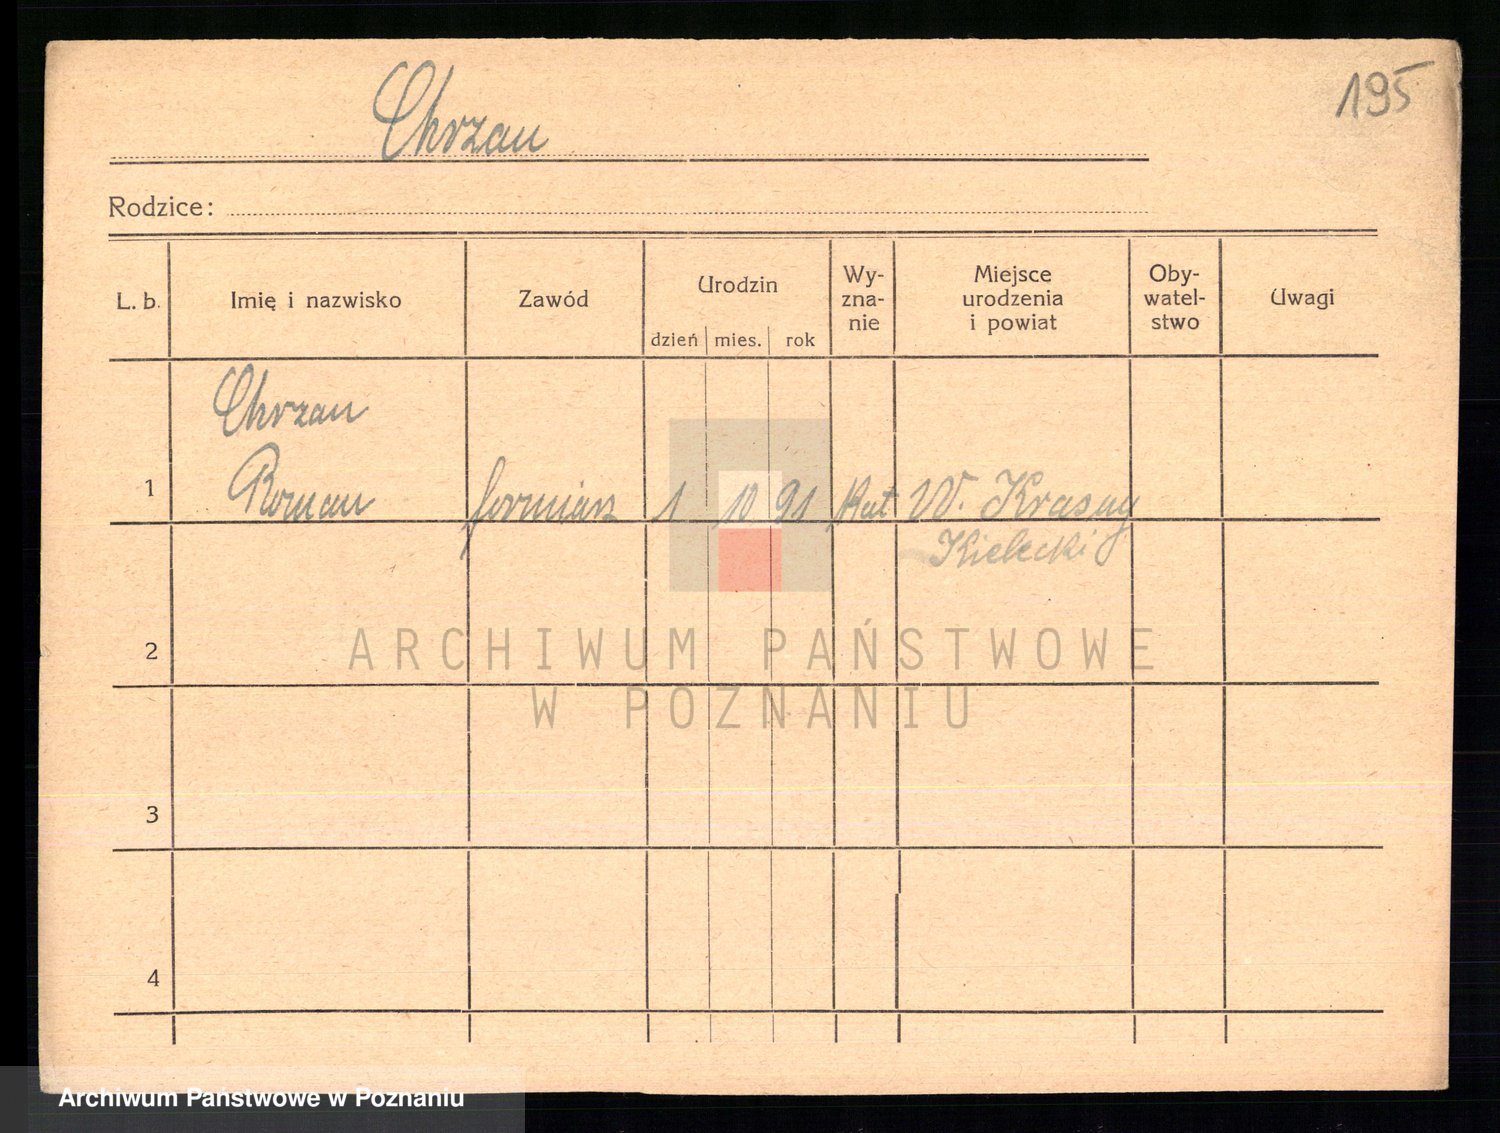 195
Chrzan
Rodzice:
L. b. Imię i nazwisko Zawód Urodzin dzień mies. rok Wy-zna-nie Miejsce urodzenia i powiat Oby-watel-stwo Uwagi
Chrzan
1 Roman formiarz 1 10 91 kat W. Krasny
Kielecki
2
ARCHIWUM PAŃSTWOWE
W POZNANIU
3
4
Archiwum Państwowe w Poznaniu